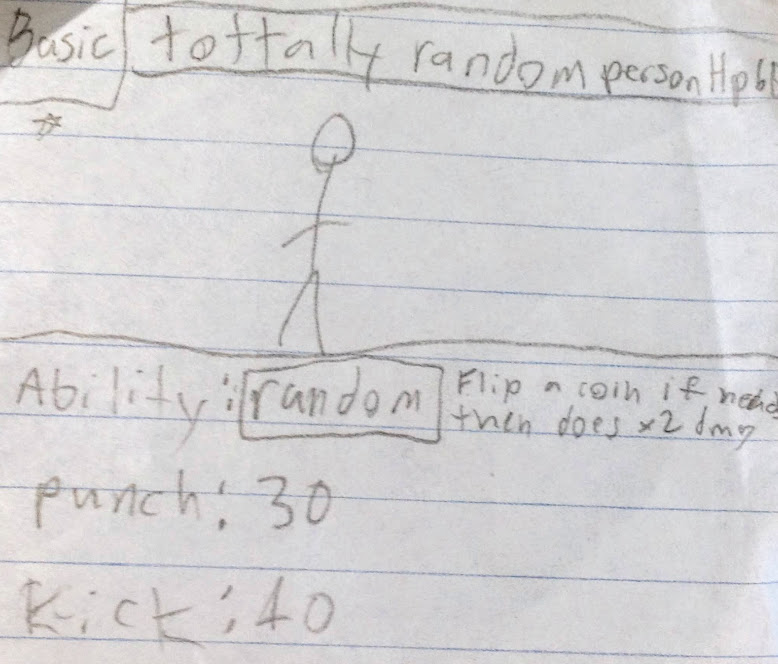 Basic tottally random person Hp 6
Ability: random Flip a coin if
then does x2 dmg
punch: 30
Kick: 40